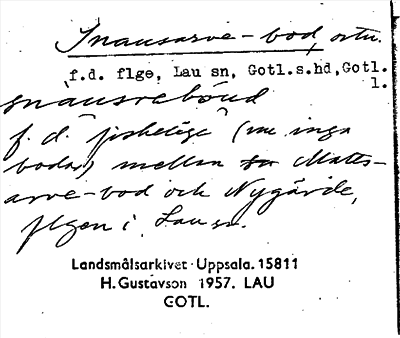 Snausarve-bod, ortn.
f.d. flge, Lau sn, Gotl.s.hd, Gotl.
l.
snausrebōud
f. d. "fiskeläge" (nu inga
bodar) mellan Matts-
arve-bod och Nygårde,
flgen i Lau sn.
Landsmålsarkivet Uppsala. 15811
H. Gustavson 1957. LAU
GOTL.